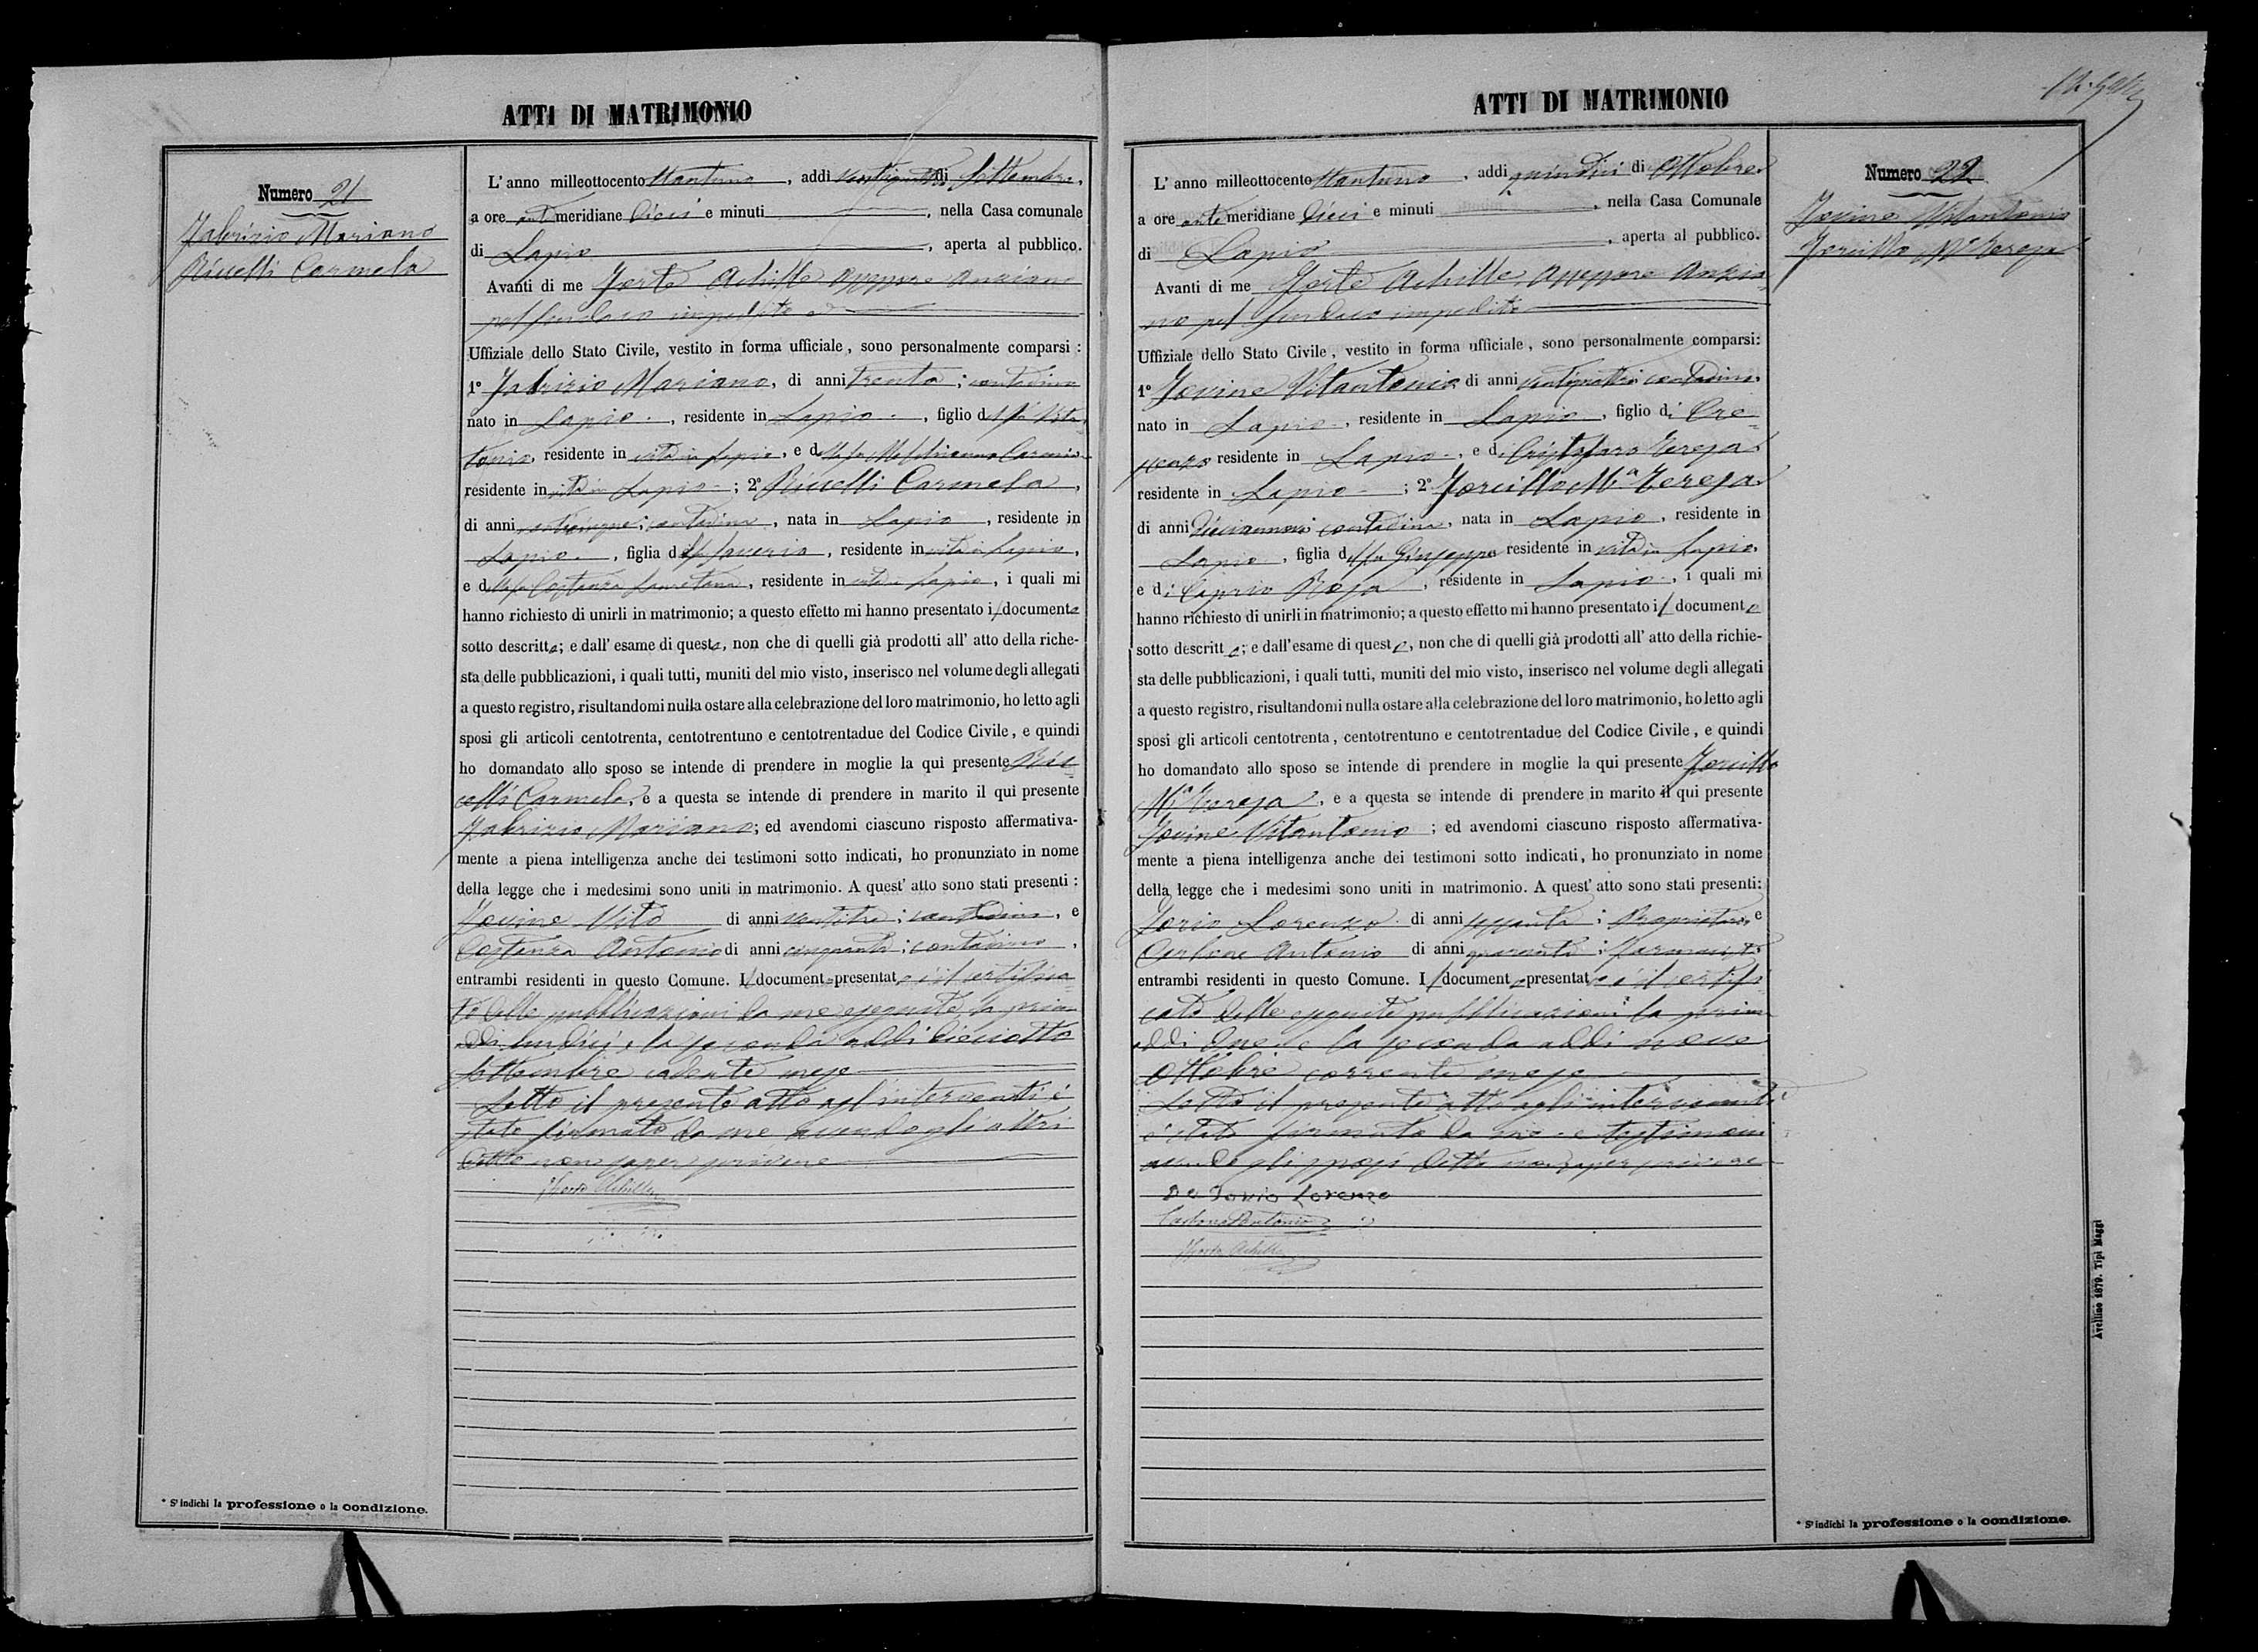 ATTI DI MATRIMONIO
Numero 21
Fabrizio Mariano
Riccelli Carmela
L'anno milleottocento ottantuno, addì di Settembre,
a ore ant meridiane dieci e minuti , nella Casa comunale
di Lapio , aperta al pubblico.
Avanti di me Forte Achille Assessore Anziano
pel Sindaco impedito
Uffiziale dello Stato Civile, vestito in forma ufficiale, sono personalmente comparsi:
1° Fabrizio Mariano, di anni trenta; contadino
nato in Lapio, residente in Lapio, figlio del fu Vitan
tonio, residente in vita in Lapio, e della fu Carmina
residente in vita in Lapio; 2° Riccelli Carmela,
di anni ; contadina, nata in Lapio, residente in
Lapio, figlia del fu Saverio, residente in vita in Lapio,
e della fu Costanza , residente in vita in Lapio, i quali mi
hanno richiesto di unirli in matrimonio; a questo effetto mi hanno presentato il documento
sotto descritto; e dall'esame di questo, non che di quelli già prodotti all'atto della riche-
sta delle pubblicazioni, i quali tutti, muniti del mio visto, inserisco nel volume degli allegati
a questo registro, risultandomi nulla ostare alla celebrazione del loro matrimonio, ho letto agli
sposi gli articoli centotrenta, centotrentuno e centotrentadue del Codice Civile, e quindi
ho domandato allo sposo se intende di prendere in moglie la qui presente Ric
celli Carmela, e a questa se intende di prendere in marito il qui presente
Fabrizio Mariano; ed avendomi ciascuno risposto affermativa-
mente a piena intelligenza anche dei testimoni sotto indicati, ho pronunziato in nome
della legge che i medesimi sono uniti in matrimonio. A quest'atto sono stati presenti:
Jovine Vito di anni ventitre; contadino, e
Costanza Antonio di anni cinquanta; contadino,
entrambi residenti in questo Comune. Il documento presentato è il certifica
to delle pubblicazioni da me eseguite, la prima
addì undici, e la seconda addì dieciotto
Settembre cadente mese
Letto il presente atto agl'intervenuti è
stato firmato da me avendo gli altri
detto non saper scrivere
Forte Achille
* S'indichi la professione o la condizione.
ATTI DI MATRIMONIO
Numero 22
Jovine Vitantonio
Forcillo Mª Teresa
L'anno milleottocento ottantuno, addì quindici di Ottobre
a ore ante meridiane dieci e minuti , nella Casa Comunale
di Lapio , aperta al pubblico.
Avanti di me Forte Achille Assessore Anzia
no pel Sindaco impedito
Uffiziale dello Stato Civile, vestito in forma ufficiale, sono personalmente comparsi:
1° Jovine Vitantonio, di anni ventiquattro contadino,
nato in Lapio, residente in Lapio, figlio di Cre
scenzo residente in Lapio, e di Cristofaro Teresa
residente in Lapio; 2° Forcillo Mª Teresa
di anni diciannove contadina, nata in Lapio, residente in
Lapio, figlia del fu Giuseppe residente in vita in Lapio,
e di Ciprio Rosa, residente in Lapio, i quali mi
hanno richiesto di unirli in matrimonio; a questo effetto mi hanno presentato il documento
sotto descritto; e dall'esame di questo, non che di quelli già prodotti all'atto della richie-
sta delle pubblicazioni, i quali tutti, muniti del mio visto, inserisco nel volume degli allegati
a questo registro, risultandomi nulla ostare alla celebrazione del loro matrimonio, ho letto agli
sposi gli articoli centotrenta, centotrentuno e centotrentadue del Codice Civile, e quindi
ho domandato allo sposo se intende di prendere in moglie la qui presente Forcillo
Mª Teresa, e a questa se intende di prendere in marito il qui presente
Jovine Vitantonio; ed avendomi ciascuno risposto affermativa-
mente a piena intelligenza anche dei testimoni sotto indicati, ho pronunziato in nome
della legge che i medesimi sono uniti in matrimonio. A quest'atto sono stati presenti:
Jorio Lorenzo di anni sessanta; Proprietario e
Carbone Antonio di anni quaranta; Farmacista
entrambi residenti in questo Comune. Il documento presentato è il certifi
cato delle eseguite pubblicazioni: la prima
addì due, e la seconda addì nove
Ottobre corrente mese
Letto il presente atto agli intervenuti
è stato firmato da me e testimoni
avendo gli sposi detto non saper scrivere
De Jorio Lorenzo
Carbone Antonio
Forte Achille
* S'indichi la professione o la condizione.
Avellino 1879. Tipi Maggi